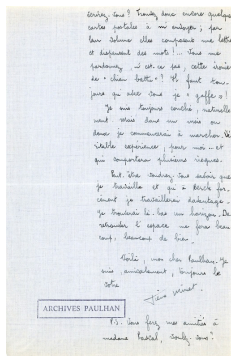 écrirez-vous ? Trouvez donc encore quelques
cartes postales à m'envoyer ; par
leur colonne elles composent une lettre
et dispensent des mots ! ... Vous me
pardonnez, n'est-ce pas, cette ironie
de "chien battu" ! Il faut tou-
jours qu'
Je suis toujours couché, naturelle-
ment. Mais dans un mois ou
deux je commencerai à marcher. Vé-
ritable expérience, pour moi — et
qui comportera plusieurs risques.
Peut-être voudrez-vous savoir que
je travaille et qu'à Berck for-
cément je travaillerai davantage.
Je trouverai là-bas un horizon. De
retrouver l'espace me fera beau-
coup, beaucoup de bien.
Voilà, mon cher Paulhan. Je
suis, amicalement, toujours le
vôtre
ARCHIVES PAULHAN
P.S. Vous ferez mes amitiés à
madame Pascal, voulez-vous ?